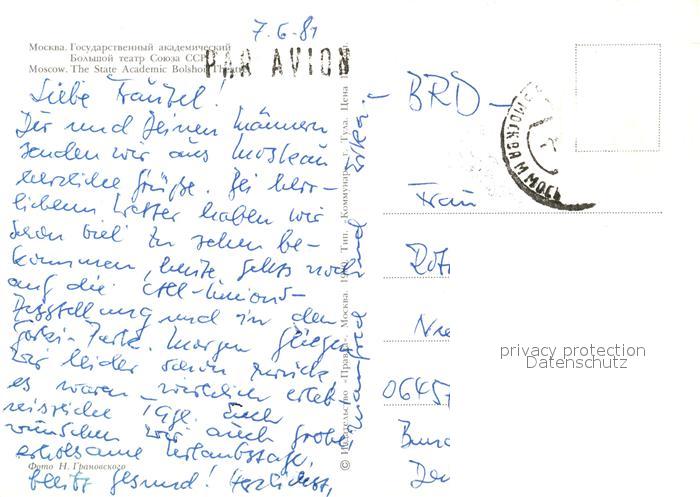 7.6.81
Москва. Государственный академический
Большой театр Союза ССР
Moscow. The State Academic Bolshoi Theatre
PAR AVION
Liebe Traudel!
Dir und Deinen Männern
senden wir aus Moskau
herzliche Grüße. Bei herr-
lichem Wetter haben wir
schon viel zu sehen be-
kommen, heute gehts noch
auf die All-Unions-
Ausstellung und in den
Gorki-Park. Morgen fliegen
wir leider schon zurück,
es waren wirklich erleb-
nisreiche Tage. Euch
wünschen wir auch frohe
erholsame Urlaubstage,
bleibt gesund! Herzlichst,
Фото Н. Грановского
© Издательство «Правда». Москва. Тип. «Коммунар», г. Тула. Цена
Manfred und Erika
- BRD -
МОСКВА
Frau
06457
privacy protection
Datenschutz